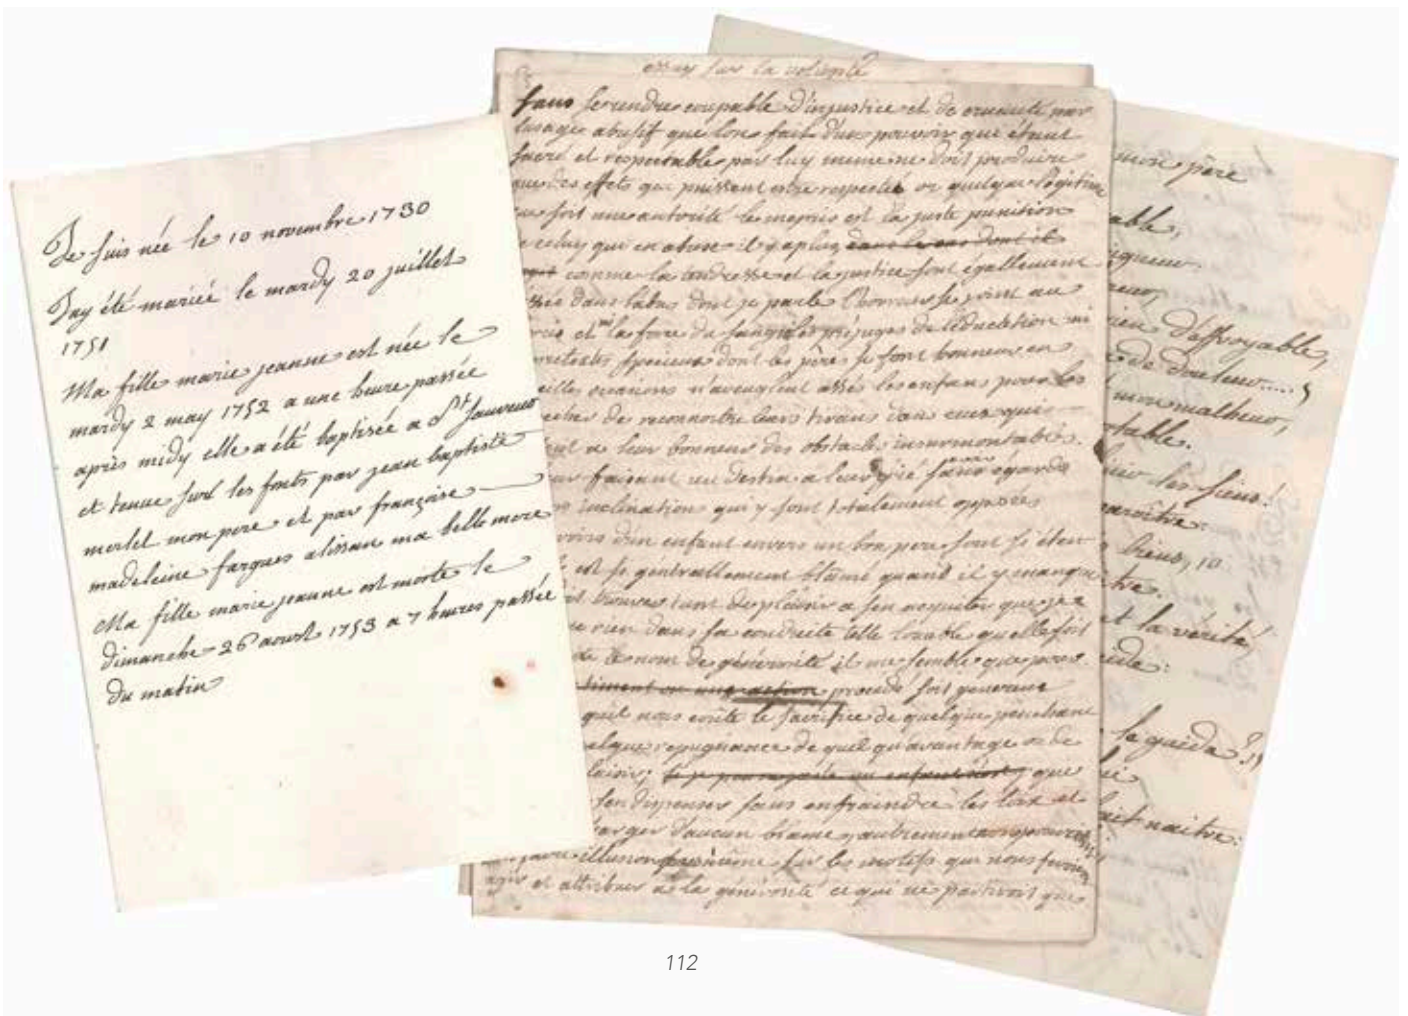 Je suis née le 10 novembre 1730
Jay été mariée le mardy 20 juillet
1751
Ma fille marie jeanne est née le
mardy 2 may 1752 a une heure passée
après midy elle a été baptisée a St sauveur
et tenue sur les fonts par jean baptiste
morlet mon pere et par françoise
madeleine fargues alissan ma belle mere
Ma fille marie jeanne est morte le
dimanche 26 aoust 1753 a 7 heures passée
du matin
essay sur la volonté
sans se rendre coupable d'injustice et de cruauté par
lusage abusif que lon fait d'un pouvoir que étant
sacré et respectable par luy meme ne doit produire
que des effets qui puissent estre respectés or quelque légitime
que soit une autorité le mepris est la juste punition
de celuy qui en abuse il y a plus dans le cas dont il
comme la tendresse et la justice sont égallement
dans labus dont je parle l'horreur se joint au
et la force du sang les préjugés de l'éducation ni
pretextes specieux dont les pères se font honneur en
ocasions n'aveuglent assés les enfans pour les
de reconnoitre leurs tirans dans ceux qui
a leur bonheur des obstacles insurmontables.
faisant un destin a leur gré sans avoir égard a
inclination qui y sont totalement opposées
d'un enfant envers un bon pere sont si éten
est si generallement blamé quand il y manque
trouver tant de plaisir a sen acquiter que je
rien dans sa conduite telle louable quelle soit
le nom de générosité il me semble que pour
timent ou une action procédé soit genereux
quil nous coûte le sacrifice de quelque penchant
repugnance de quelqu'avantage ou de
plaisir; que
sen dispenser sans enfraindre les loix et
charger d'aucun blame autrement
illusion sur les motifs qui nous font
agir et attribuer a la générosité ce qui ne partiroit que
mon père
able,
rien d'effroyable,
de douleur.....
mon malheur,
table.
les siens!
paroître:
biens, 10
tre.
et la vérité,
ide:
le guida
ait naitre:
112